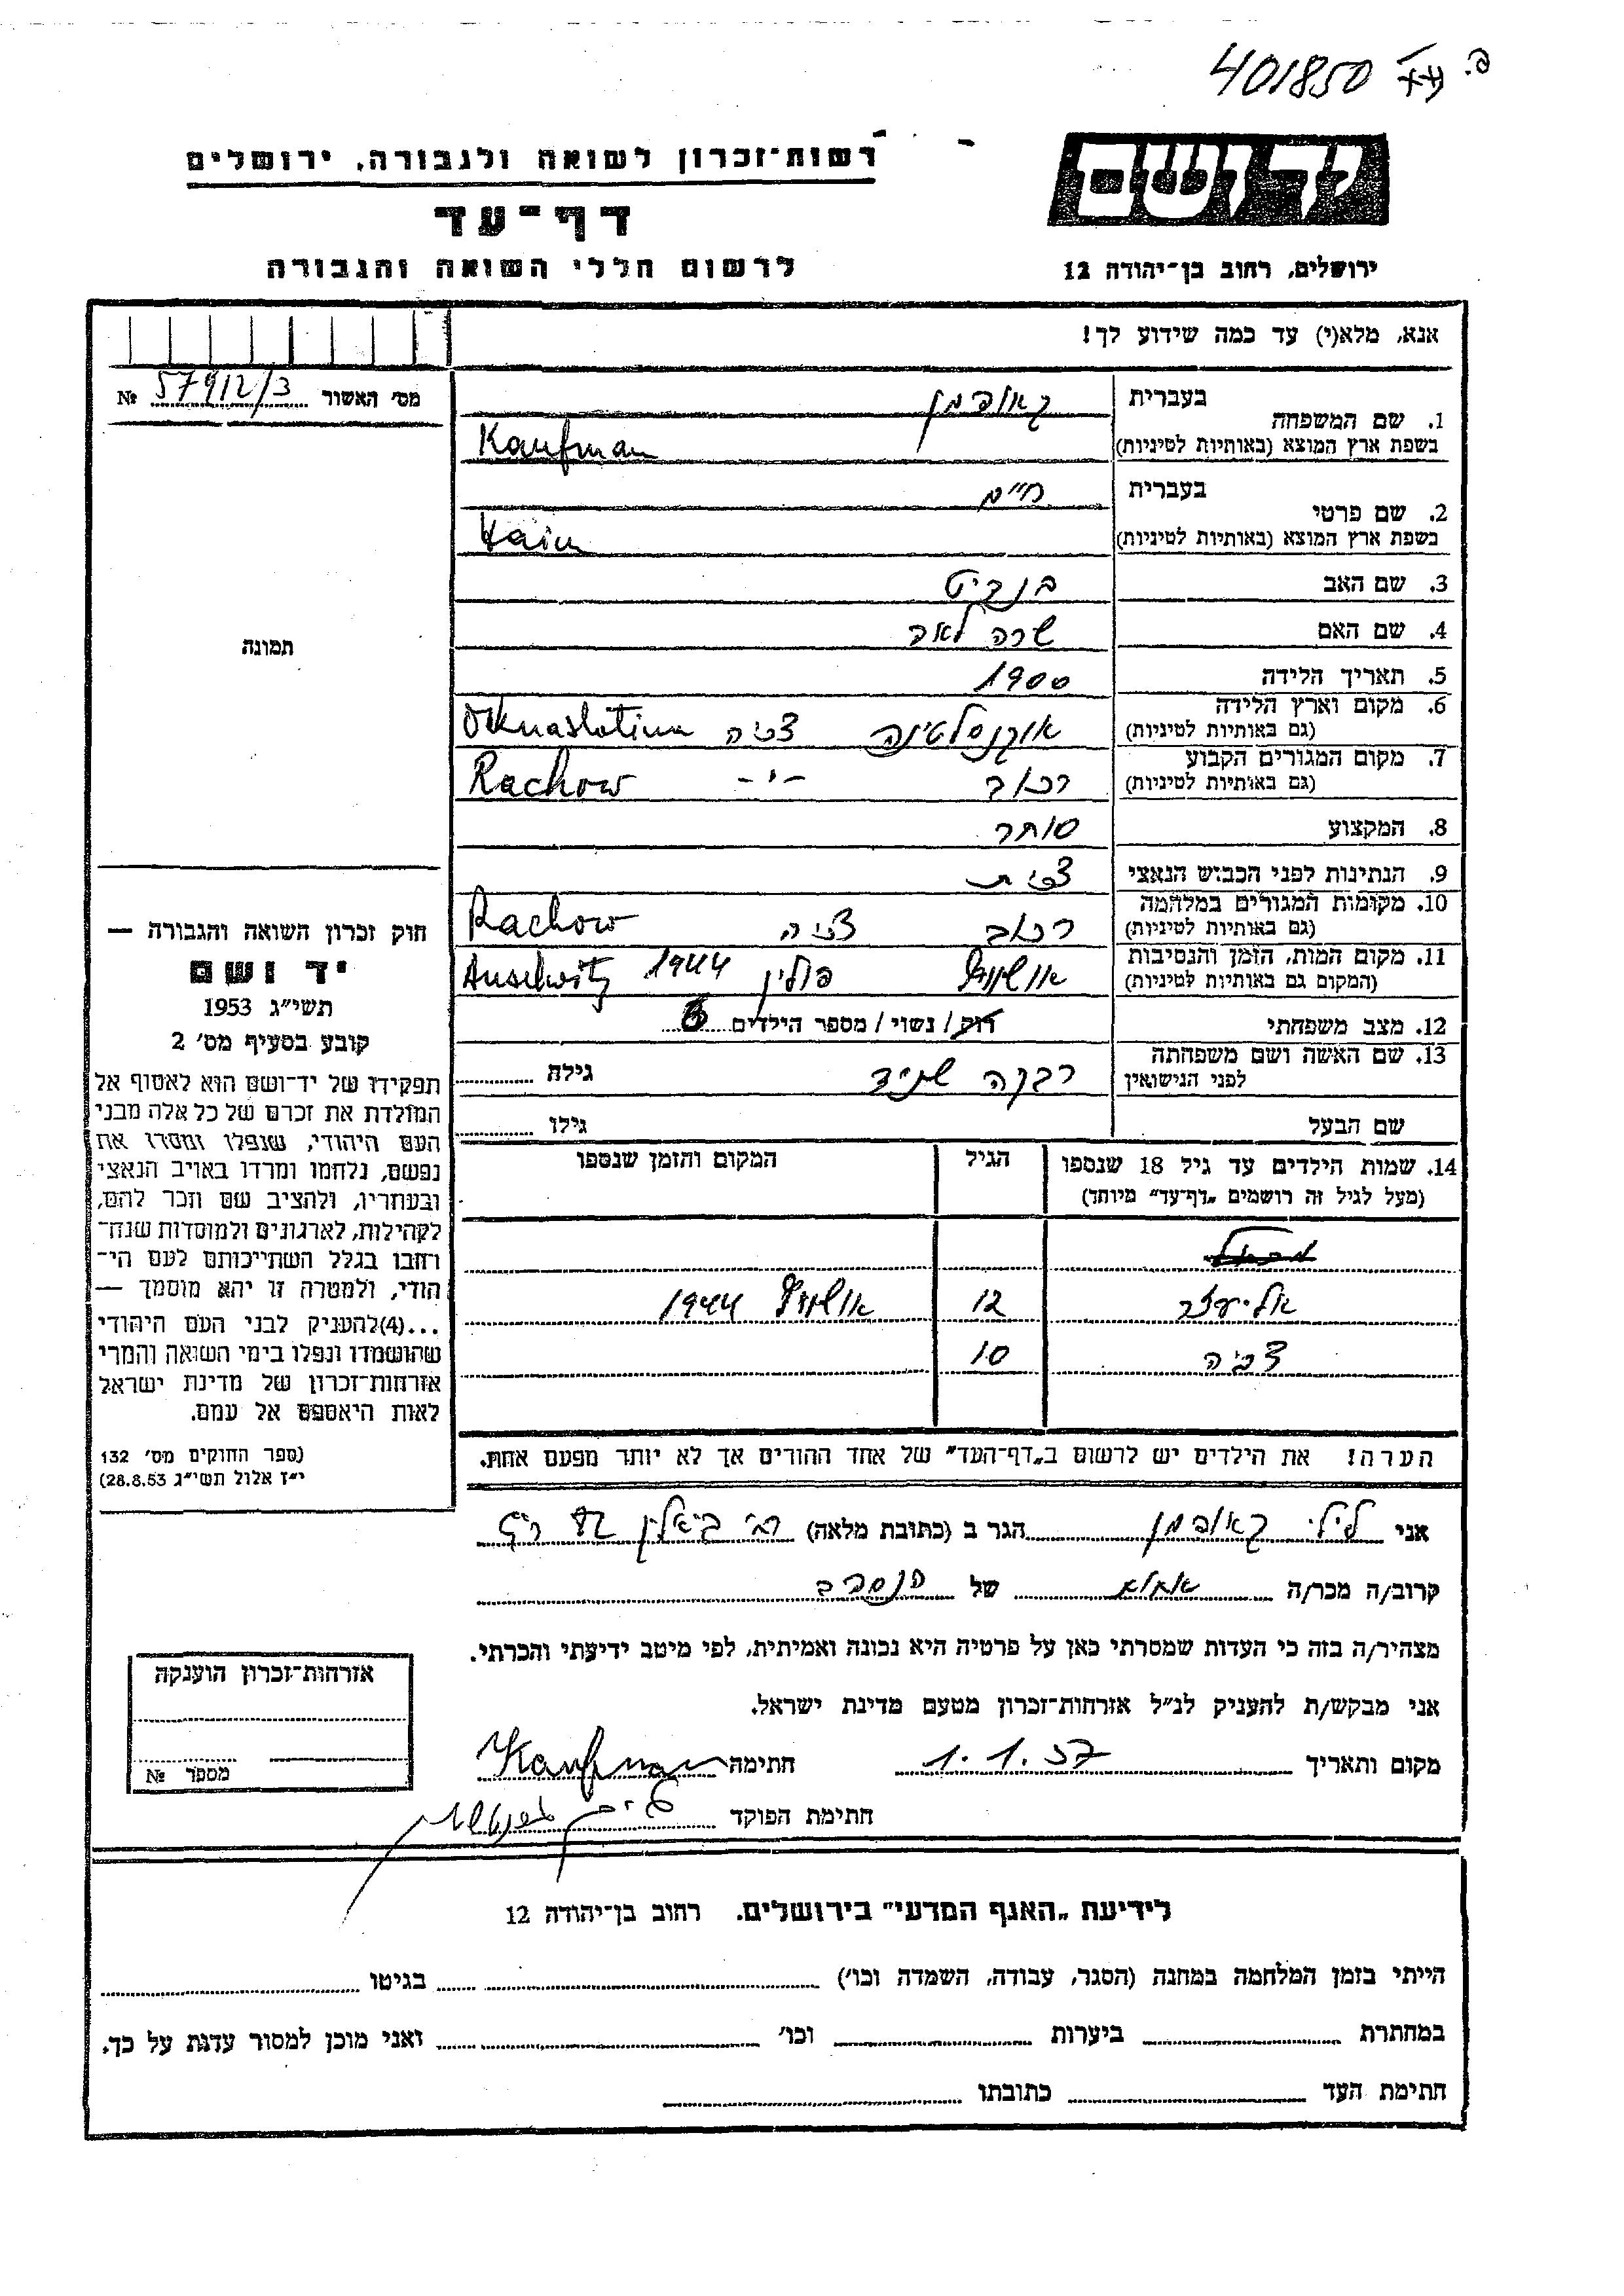 401850
רשות־זכרון לשואה ולגבורה, ירושלים
דף־עד
לרשום חללי השואה והגבורה
יד ושם
ירושלים, רחוב בן־יהודה 12
אנא, מלא(י) עד כמה שידוע לך!
מס׳ האשור 57912/3 №
תמונה
1. שם המשפחה בעברית קאופמן
בשפת ארץ המוצא (באותיות לטיניות) Kaufman
2. שם פרטי בעברית חיים
בשפת ארץ המוצא (באותיות לטיניות) Haim
3. שם האב בנדיט
4. שם האם שרה לאה
5. תאריך הלידה 1900
6. מקום וארץ הלידה (גם באותיות לטיניות) אוקנסלטינה צ׳כיה Oknaslatina
7. מקום המגורים הקבוע (גם באותיות לטיניות) רכוב -"- Rachow
8. המקצוע סוחר
9. הנתינות לפני הכבוש הנאצי צ׳כית
10. מקומות המגורים במלחמה (גם באותיות לטיניות) רכוב צ׳כיה Rachow
11. מקום המות, הזמן והנסיבות (המקום גם באותיות לטיניות) אושוויץ פולין 1944 Auschwitz
12. מצב משפחתי רוק / נשוי / מספר הילדים 6
13. שם האשה ושם משפחתה לפני הנישואין רבקה שמיד גילה
שם הבעל גילו
14. שמות הילדים עד גיל 18 שנספו הגיל המקום והזמן שנספו
(מעל לגיל זה רושמים „דף־עד״ מיוחד)
אליעזר 12 אושוויץ 1944
צביה 10
הערה! את הילדים יש לרשום ב„דף־העד״ של אחד ההורים אך לא יותר מפעם אחת.
חוק זכרון השואה והגבורה —
יד ושם
תשי״ג 1953
קובע בסעיף מס׳ 2
תפקידו של יד־ושם הוא לאסוף אל
המולדת את זכרם של כל אלה מבני
העם היהודי, שנפלו ומסרו את
נפשם, נלחמו ומרדו באויב הנאצי
ובעוזריו, ולהציב שם וזכר להם,
לקהילות, לארגונים ולמוסדות שנח־
רבו בגלל השתייכותם לעם הי־
הודי, ולמטרה זו יהא מוסמך —
...(4) להעניק לבני העם היהודי
שהושמדו ונפלו בימי השואה והמרי
אזרחות־זכרון של מדינת ישראל
לאות היאספם אל עמם.
(ספר החוקים מס׳ 132
י״ז אלול תשי״ג 28.8.53)
אני לילי קאופמן הגר ב (כתובת מלאה) רח׳ ביאליק
קרוב/ה מכר/ה של הנספה
מצהיר/ה בזה כי העדות שמסרתי כאן על פרטיה היא נכונה ואמיתית, לפי מיטב ידיעתי והכרתי.
אני מבקש/ת להעניק לנ״ל אזרחות־זכרון מטעם מדינת ישראל.
מקום ותאריך 1.1.57 חתימה Kaufman
חתימת הפוקד
אזרחות־זכרון הוענקה
מספר №
לידיעת „האגף המדעי״ בירושלים. רחוב בן־יהודה 12
הייתי בזמן המלחמה במחנה (הסגר, עבודה, השמדה וכו׳) בגיטו
במחתרת ביערות וכו׳ ואני מוכן למסור עדות על כך.
חתימת העד כתובתו